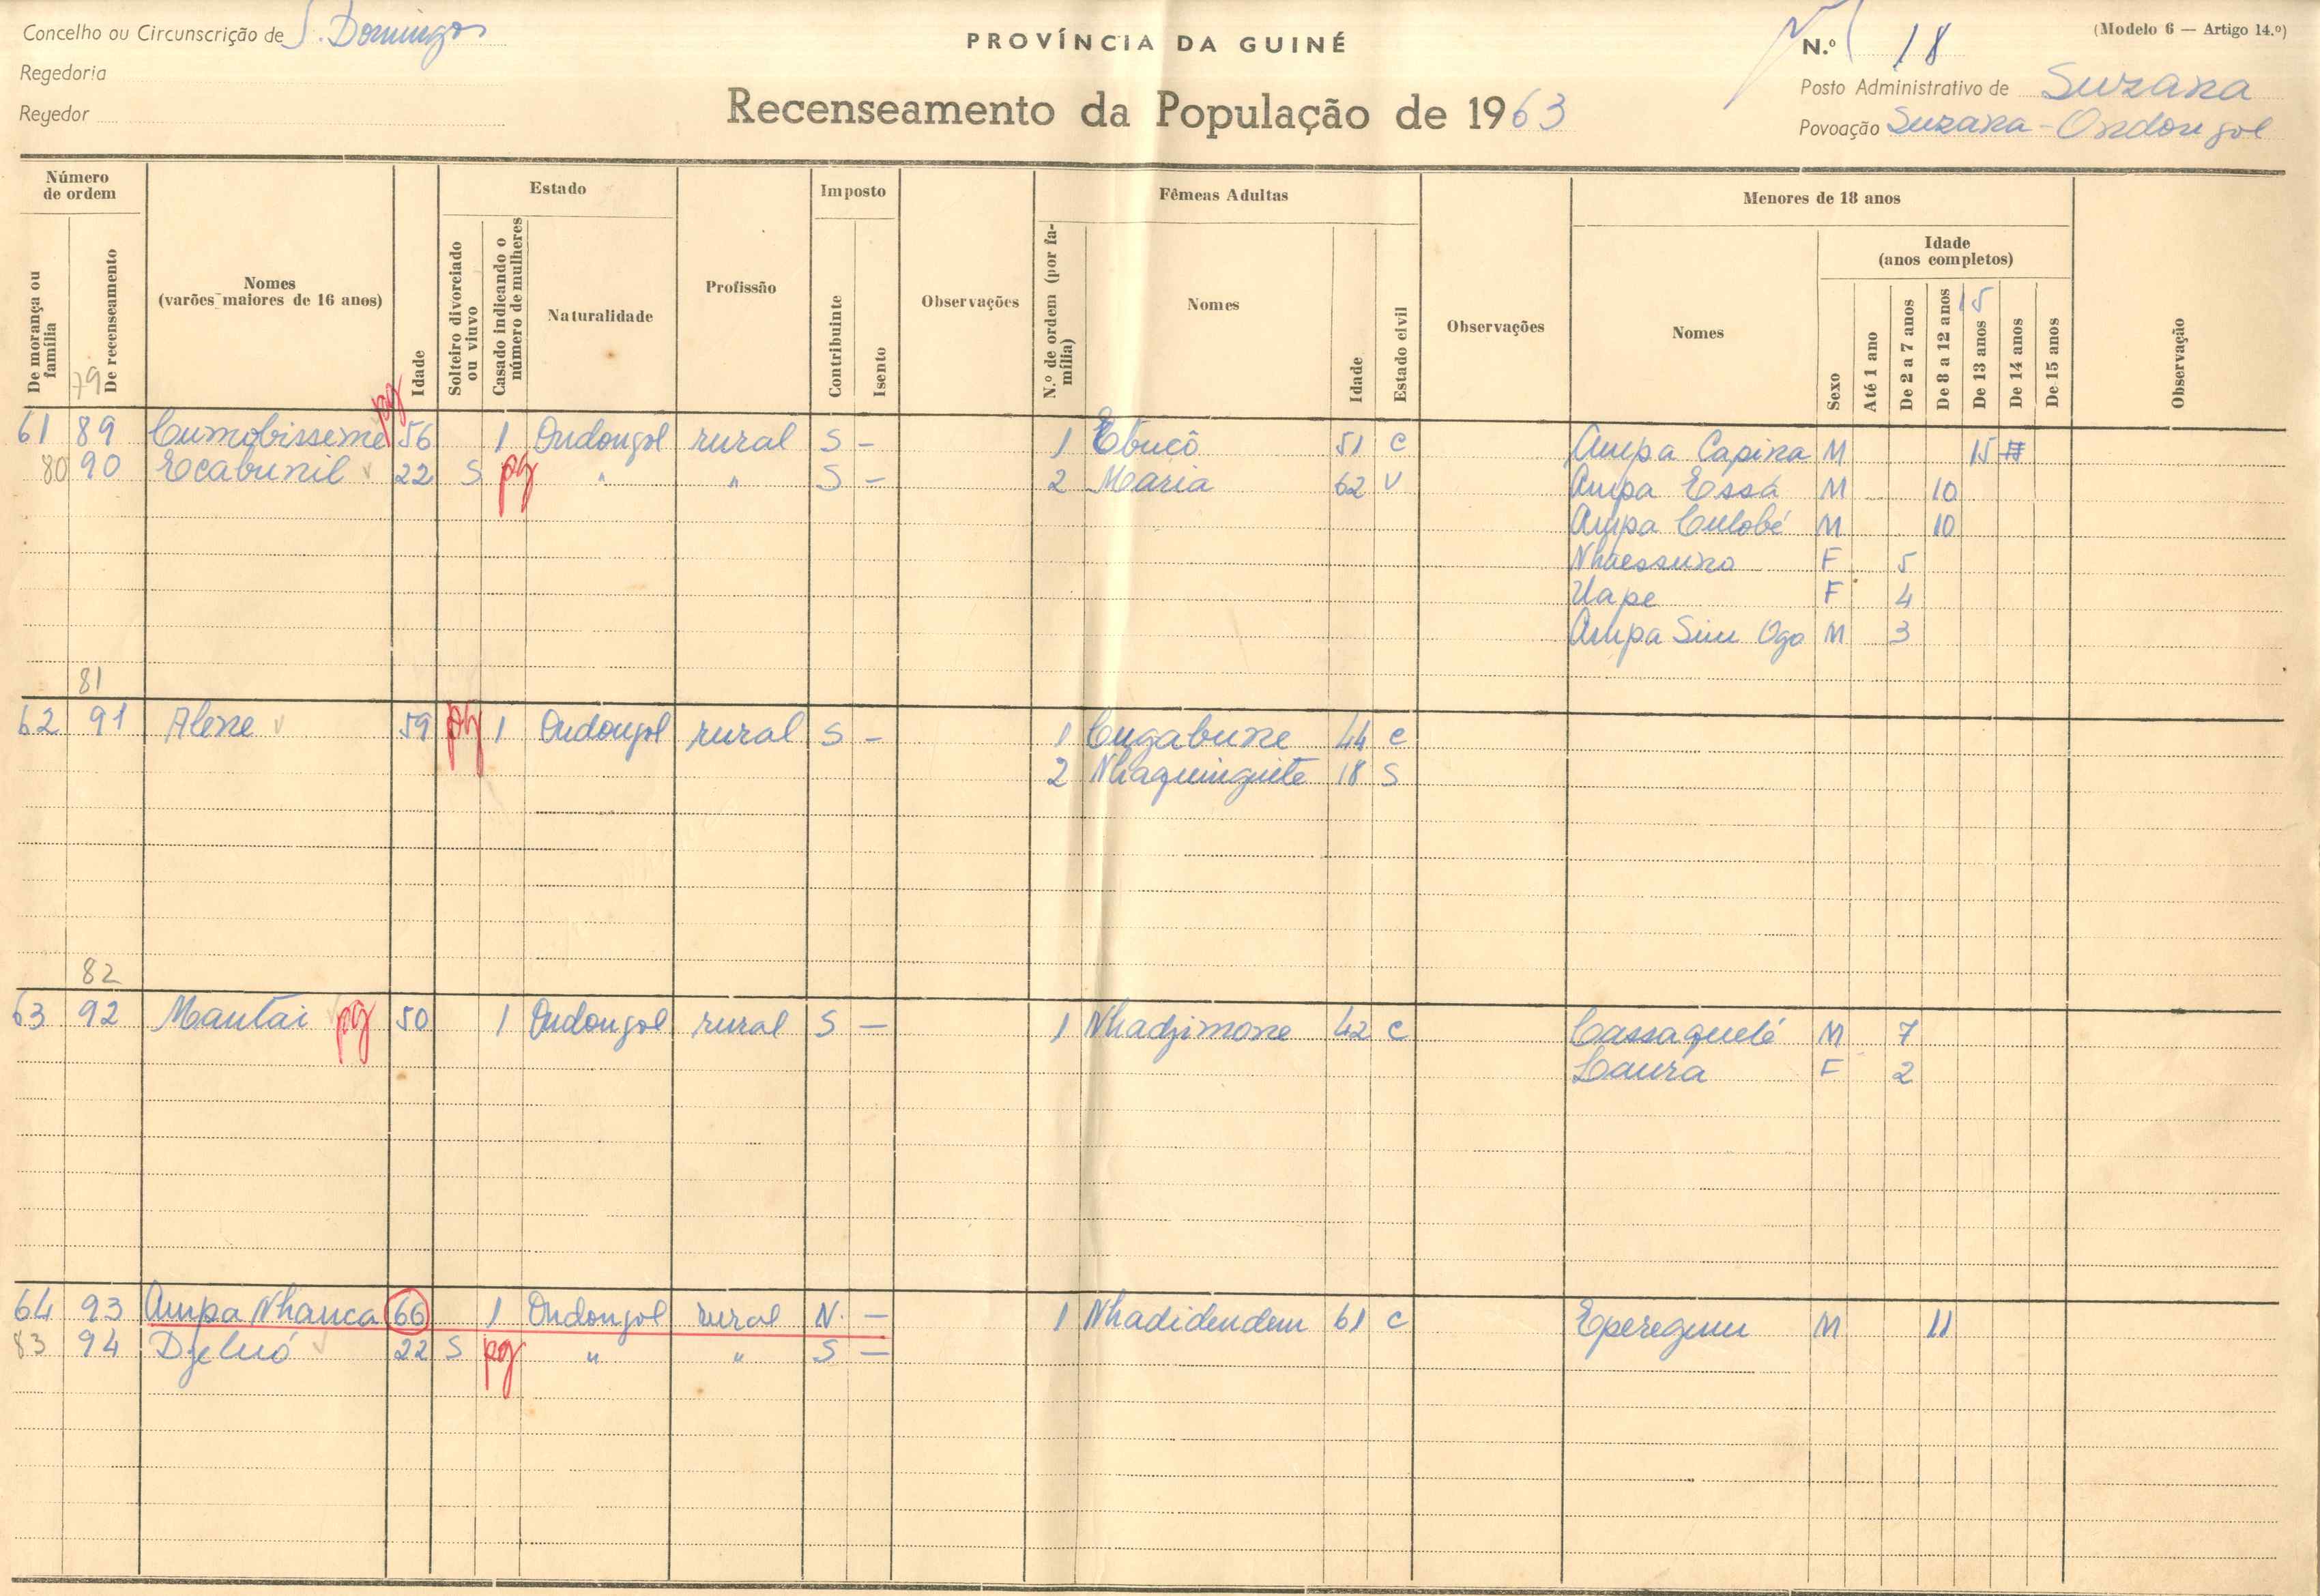 Concelho ou Circunscrição de S. Domingos
Regedoria
Regedor
PROVÍNCIA DA GUINÉ
Recenseamento da População de 1963
(Modelo 6 — Artigo 14.º)
N.º 18
Posto Administrativo de Suzana
Povoação Suzana - Ondongol
Número de ordem
De morança ou família
De recenseamento
Nomes (varões maiores de 16 anos)
Idade
Estado
Solteiro divorciado ou viuvo
Casado indicando o número de mulheres
Naturalidade
Profissão
Imposto
Contribuinte
Isento
Observações
Fêmeas Adultas
N.º de ordem (por família)
Nomes
Idade
Estado civil
Observações
Menores de 18 anos
Nomes
Sexo
Idade (anos completos)
Até 1 ano
De 2 a 7 anos
De 8 a 12 anos
15
De 13 anos
De 14 anos
De 15 anos
Observação
79
61 89 Cumobisseme pg 56 1 Ondongol rural S - 1 Ebucô 51 C Ampa Capina M 15
80 90 Ecabunil 22 S pg " " S - 2 Maria 62 V Ampa Essá M 10
Ampa Culobé M 10
Nhaessuno F 5
Uape F 4
Ampa Sim Ogo M 3
81
62 91 Alene 59 pg 1 Ondongol rural S - 1 Cugabune 44 C
2 Nhaquinguite 18 S
82
63 92 Mantai pg 50 1 Ondongol rural S - 1 Nhadzimone 42 C Cassaquelé M 7
Laura F 2
64 93 Ampa Nhanca 66 1 Ondongol rural N. - 1 Nhadidendem 61 C Eperegum M 11
83 94 Djeluó 22 S pg " " S -